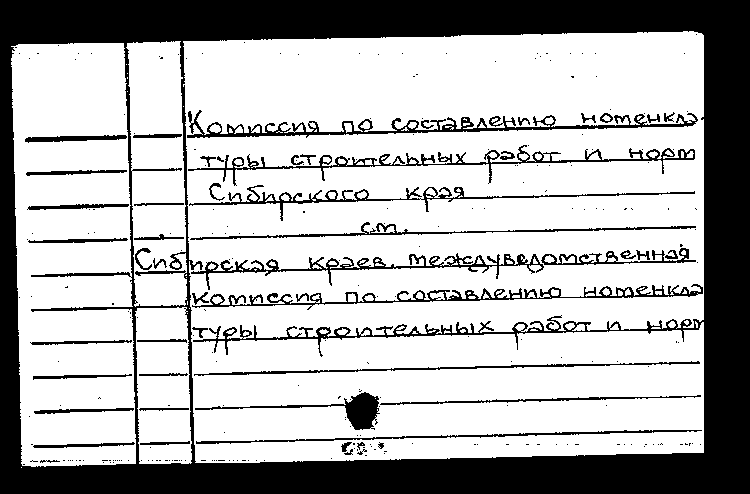 Комиссия по составлению номенкла-
туры строительных работ и норм
Сибирского края
см.
Сибирская краев. междуведомственная
комиссия по составлению номенкла
туры строительных работ и норм